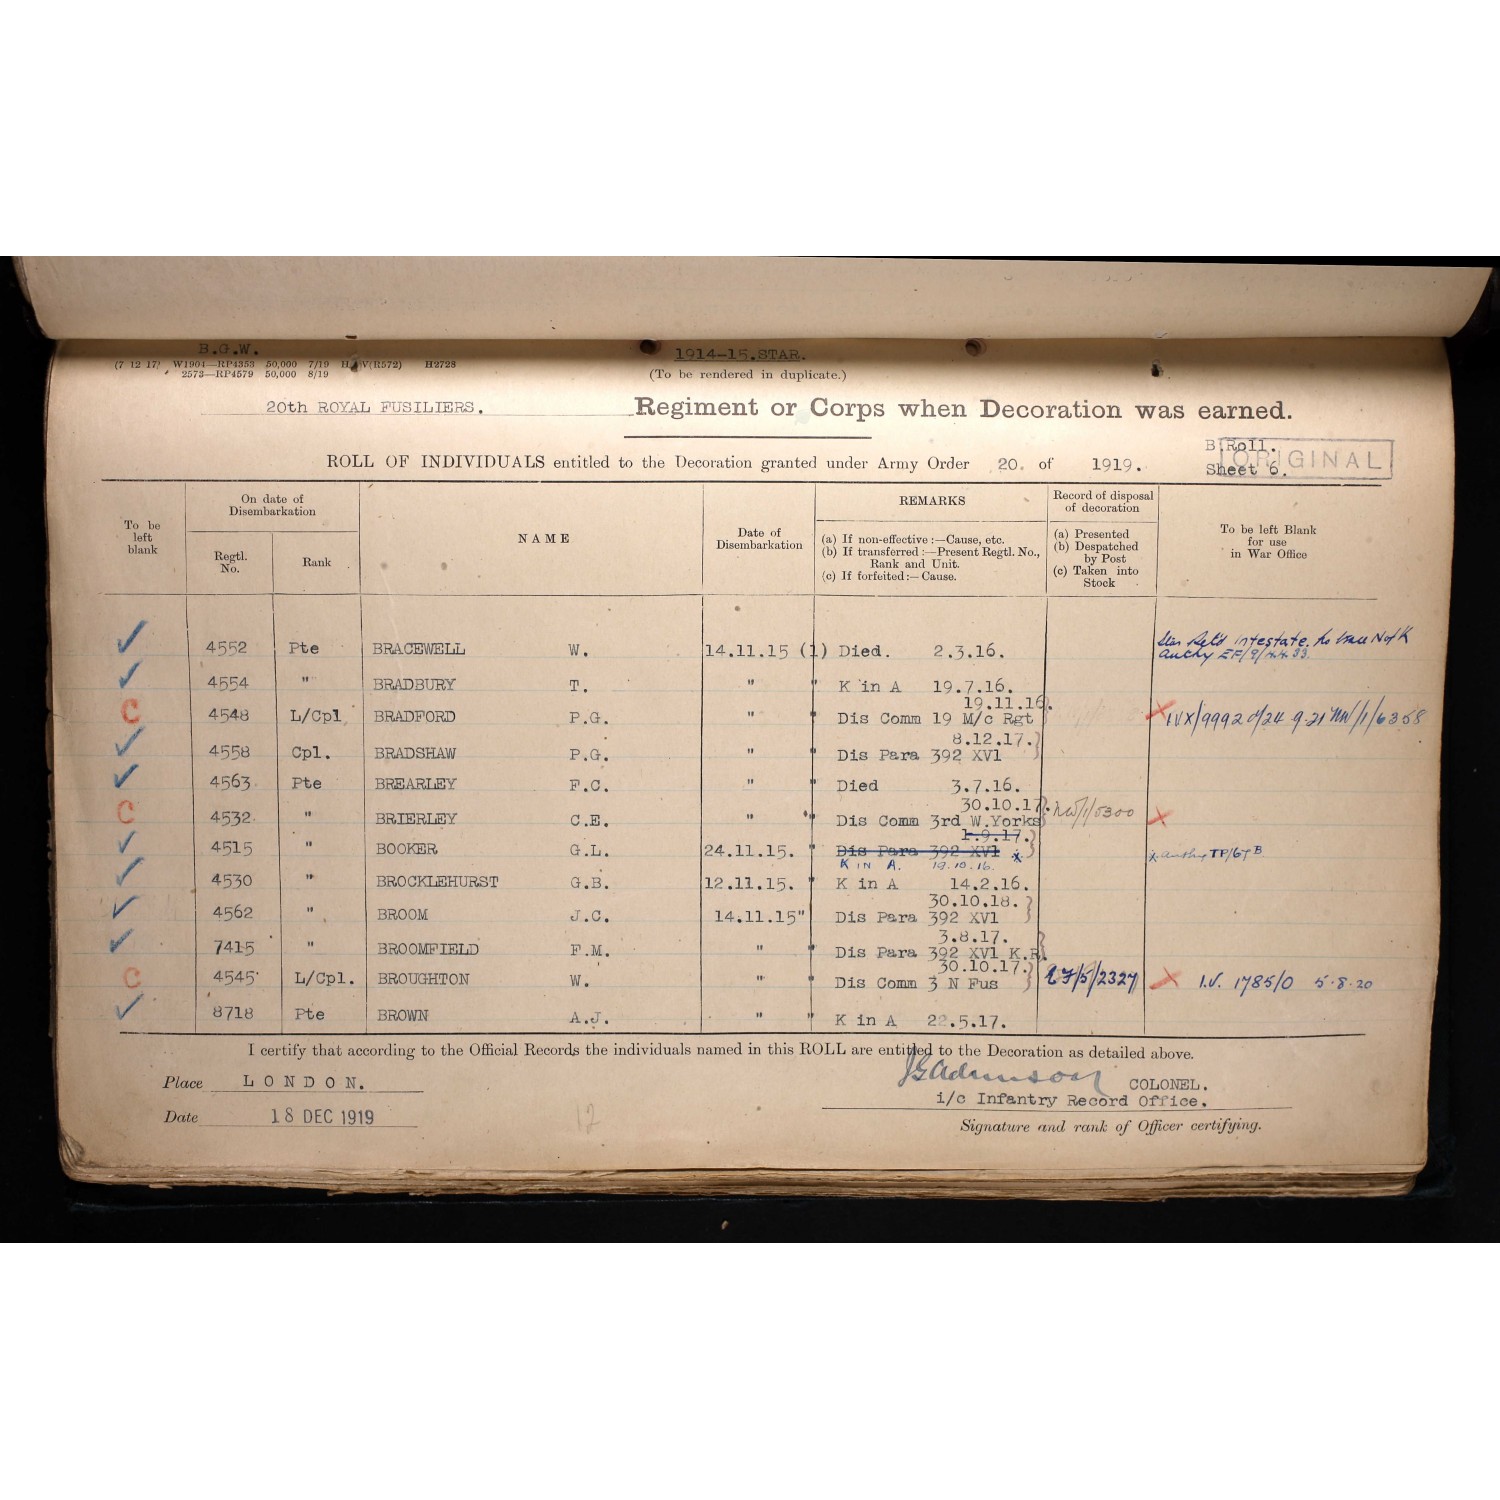 B.G.W.
(7 12 17) W1904—RP4353 50,000 7/19 H. & V(R572) H2728
2573—RP4579 50,000 8/19
1914-15.STAR.
(To be rendered in duplicate.)
20th ROYAL FUSILIERS. Regiment or Corps when Decoration was earned.
B.Roll.
ROLL OF INDIVIDUALS entitled to the Decoration granted under Army Order 20. of 1919.
Sheet 6.
ORIGINAL
To be left blank
On date of Disembarkation
Regtl. No.
Rank
NAME
Date of Disembarkation
REMARKS
(a) If non-effective :—Cause, etc.
(b) If transferred :—Present Regtl. No., Rank and Unit.
(c) If forfeited :—Cause.
Record of disposal of decoration
(a) Presented
(b) Despatched by Post
(c) Taken into Stock
To be left Blank for use in War Office
✓ 4552 Pte BRACEWELL W. 14.11.15 (1) Died. 2.3.16. Star Ret'd intestate. to issue N of K
Authy EF/9/
✓ 4554 " BRADBURY T. " " K in A 19.7.16.
19.11.16.
C 4548 L/Cpl BRADFORD P.G. " " Dis Comm 19 M/c Rgt X IVX/9992 d/24.9.21 NW/1/6358
8.12.17.
✓ 4558 Cpl. BRADSHAW P.G. " " Dis Para 392 XVl
✓ 4563 Pte BREARLEY F.C. " " Died 3.7.16.
30.10.17.
C 4532 " BRIERLEY C.E. " " Dis Comm 3rd W.Yorks NW/1/5300 X
1.9.17.
✓ 4515 " BOOKER G.L. 24.11.15. " Dis Para 392 XVl x x Authy TP/6TB
K IN A. 19.10.16.
✓ 4530 " BROCKLEHURST G.B. 12.11.15. " K in A 14.2.16.
30.10.18.
✓ 4562 " BROOM J.C. 14.11.15" Dis Para 392 XVl
3.8.17.
✓ 7415 " BROOMFIELD F.M. " " Dis Para 392 XVl K.R.
30.10.17.
C 4545 L/Cpl. BROUGHTON W. " " Dis Comm 3 N Fus 27/5/2327 X I.V. 1785/0 5.8.20
✓ 8718 Pte BROWN A.J. " " K in A 22.5.17.
I certify that according to the Official Records the individuals named in this ROLL are entitled to the Decoration as detailed above.
Place LONDON.
JGAdamson COLONEL.
i/c Infantry Record Office.
Date 18 DEC 1919
12
Signature and rank of Officer certifying.